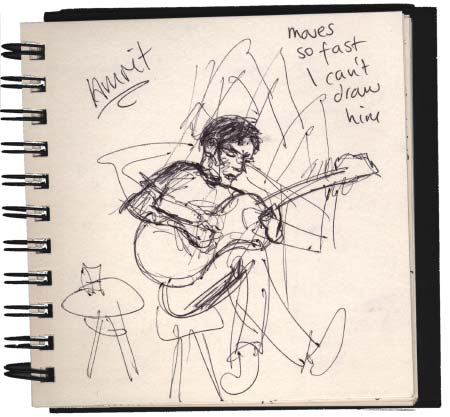 Amrit
moves
so fast
I can't
draw
him